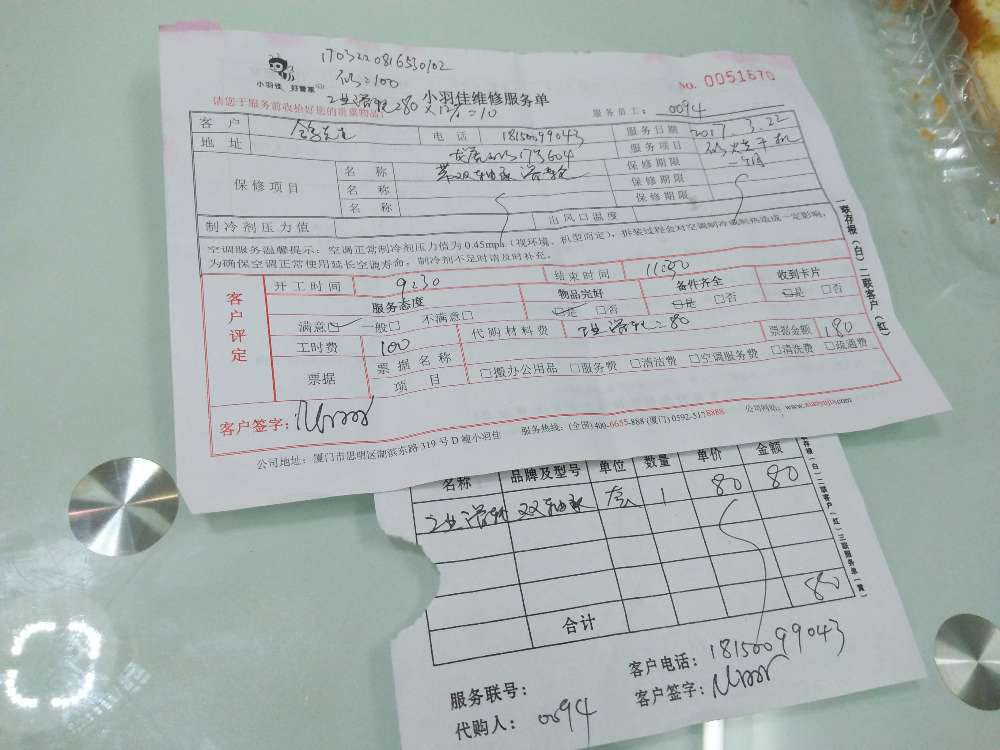 1703220816530102
=100
小羽佳 好管家
NO. 0051670
请您于服务前收拾好您的贵重物品!
小羽佳维修服务单
=80 ×12%=10
服务员工: 0094
客户 先生 电话 18150099043 服务日期 2017.3.22
地址 服务项目
保修项目 名称 保修期限 一个月
名称 保修期限
名称 保修期限
制冷剂压力值 出风口温度
空调服务温馨提示:空调正常制冷剂压力值为0.45mpa(视环境、机型而定),拆装过程会对空调制冷或制热造成一定影响,
为确保空调正常使用延长空调寿命,制冷剂不足时请及时补充。
一联存根(白)二联客户(红)
客户评定
开工时间 9:30 结束时间 11:30
服务态度 物品完好 备件齐全 收到卡片
满意☑ 一般□ 不满意□ ☑是 □否 ☑是 □否 ☑是 □否
工时费 100 代购材料费 =80 票据金额 180
票据 票据名称 □搬办公用品 □服务费 □清洁费 □空调服务费 □清洗费 □疏通费
项目
客户签字:
公司地址:厦门市思明区湖滨东路319号D幢小羽佳 服务热线:(全国)400-6655-888 (厦门) 0592-5178888 公司网站:www.xiaoyujia.com
名称 品牌及型号 单位 数量 单价 金额
套 1 80 80
80
合计
存根(白)二联客户(红)三联服务单(黄)
服务联号: 客户电话: 18150099043
代购人: 0094 客户签字: